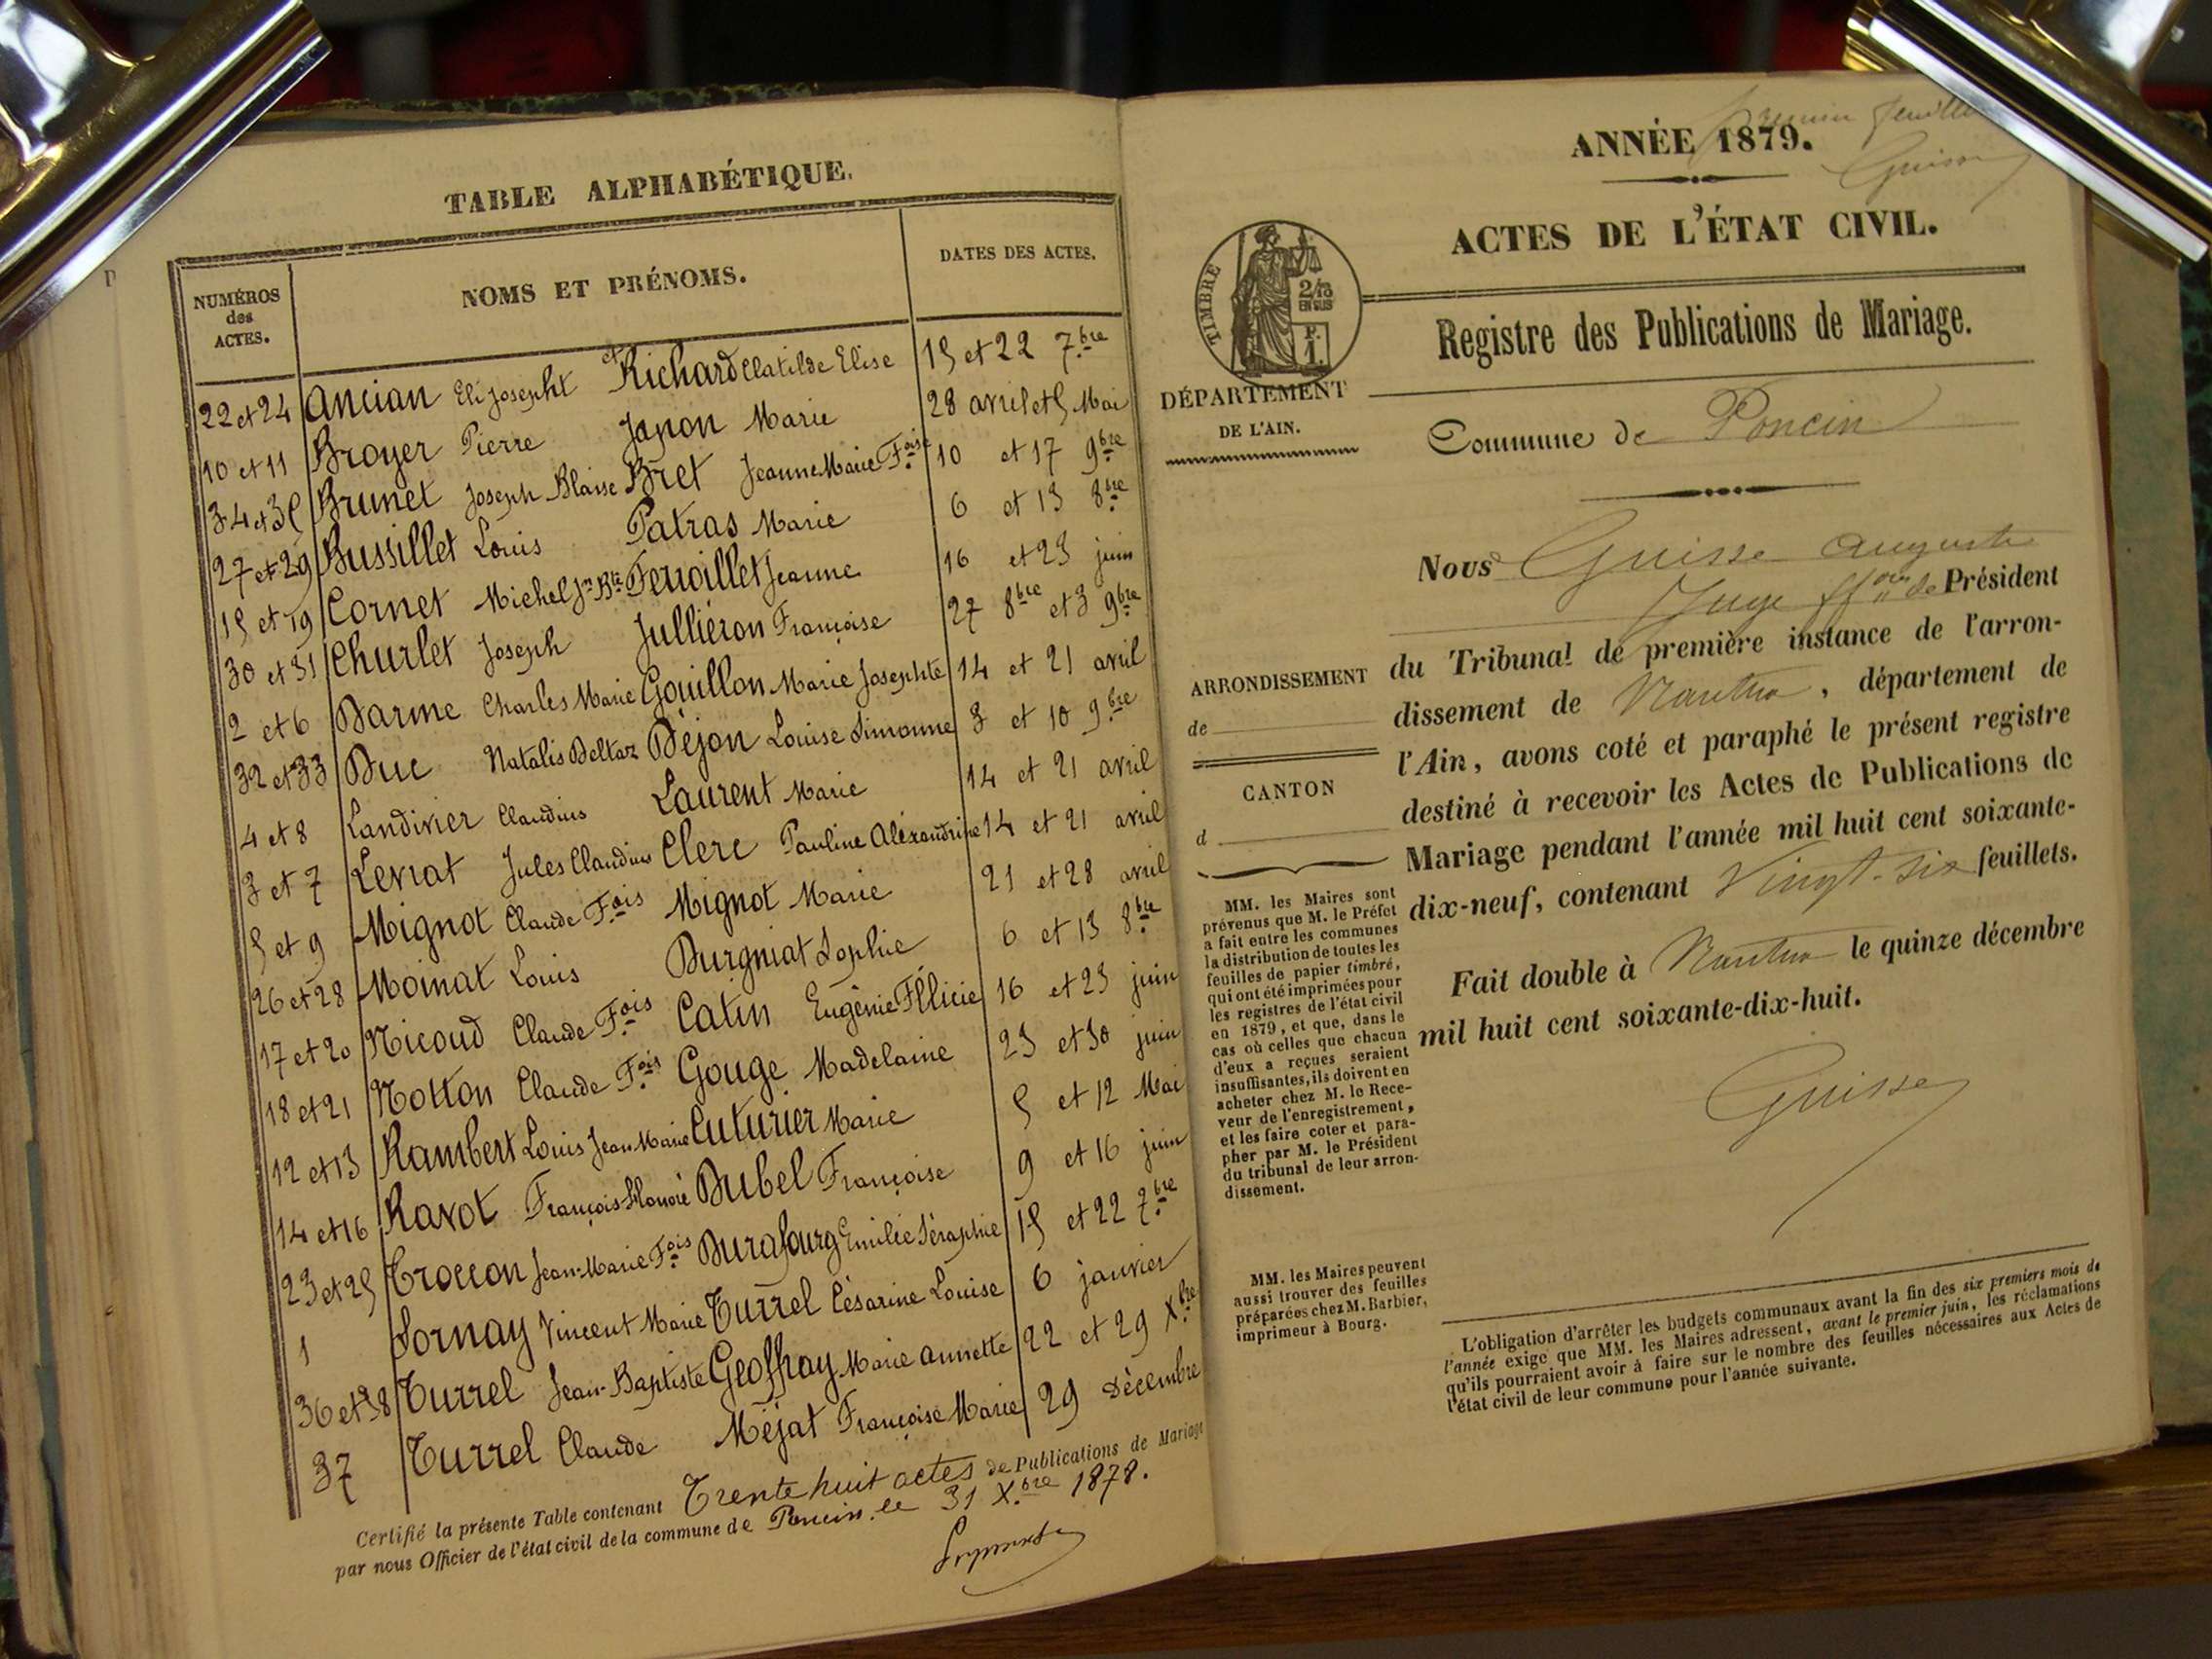 TABLE ALPHABÉTIQUE.
NUMÉROS des ACTES.
NOMS ET PRÉNOMS.
DATES DES ACTES.
22 et 24 Ancian Eli Josepht et Richard Clatilde Elise 15 et 22 7.bre
10 et 11 Broyer Pierre Japon Marie 28 avril et 5 Mai
34 et 35 Brunet Joseph Blaise Bret Jeanne Marie F.oise 10 et 17 9bre
27 et 29 Bussillet Louis Patras Marie 6 et 13 8bre
15 et 19 Cornet Michel Jn Bte Ferroillet Jeanne 16 et 23 juin
30 et 31 Churlet Joseph Julliéron Françoise 27 8bre et 3 9bre
2 et 6 Darme Charles Marie Gouillon Marie Josephte 14 et 21 avril
32 et 33 Duc Natalis Deltaz Déjon Louise Simonne 3 et 10 9.bre
4 et 8 Landivier Claudius Laurent Marie 14 et 21 avril
3 et 7 Levrat Jules Claudius Clerc Pauline Alexandrine 14 et 21 avril
5 et 9 Mignot Claude F.ois Mignot Marie 21 et 28 avril
26 et 28 Moinat Louis Durgniat Sophie 6 et 13 8bre
17 et 20 Nicoud Claude F.ois Catin Eugènie Félicie 16 et 23 juin
18 et 21 Notton Claude F.ois Gouge Madelaine 23 et 30 juin
12 et 13 Rambert Louis Jean Marie Cuturier Marie 5 et 12 Mai
14 et 16 Ravot François Honoré Dubel Françoise 9 et 16 juin
23 et 25 Troccon Jean-Marie F.ois Durafourg Emilie Séraphie 15 et 22 7.bre
1 Sornay Vincent Marie Turrel Césarine Louise 6 janvier
36 et 38 Turrel Jean-Baptiste Geoffray Marie Annette 22 et 29 X.bre
37 Turrel Claude Méjat Françoise Marie 29 Décembre
Certifié la présente Table contenant Trente huit actes de Publications de Mariage
par nous Officier de l'état civil de la commune de Poncin, le 31 X.bre 1878.
Guisse
ANNÉE 1879.
ACTES DE L'ÉTAT CIVIL.
TIMBRE
2/10
EN SUS
Registre des Publications de Mariage.
DÉPARTEMENT
DE L'AIN.
Commune de Poncin
Nous Guisse Auguste
Juge ff.ons de Président
ARRONDISSEMENT
de
CANTON
d
du Tribunal de première instance de l'arron-
dissement de Nantua, département de
l'Ain, avons coté et paraphé le présent registre
destiné à recevoir les Actes de Publications de
Mariage pendant l'année mil huit cent soixante-
dix-neuf, contenant Vingt-six feuillets.
Fait double à Nantua le quinze décembre
mil huit cent soixante-dix-huit.
Guisse
MM. les Maires sont
prévenus que M. le Préfet
a fait entre les communes
la distribution de toutes les
feuilles de papier timbré,
qui ont été imprimées pour
les registres de l'état civil
en 1879, et que, dans le
cas où celles que chacun
d'eux a reçues seraient
insuffisantes, ils doivent en
acheter chez M. le Rece-
veur de l'enregistrement,
et les faire coter et para-
pher par M. le Président
du tribunal de leur arron-
dissement.
MM. les Maires peuvent
aussi trouver des feuilles
préparées chez M. Barbier,
imprimeur à Bourg.
L'obligation d'arrêter les budgets communaux avant la fin des six premiers mois de
l'année exige que MM. les Maires adressent, avant le premier juin, les réclamations
qu'ils pourraient avoir à faire sur le nombre des feuilles nécessaires aux Actes de
l'état civil de leur commune pour l'année suivante.